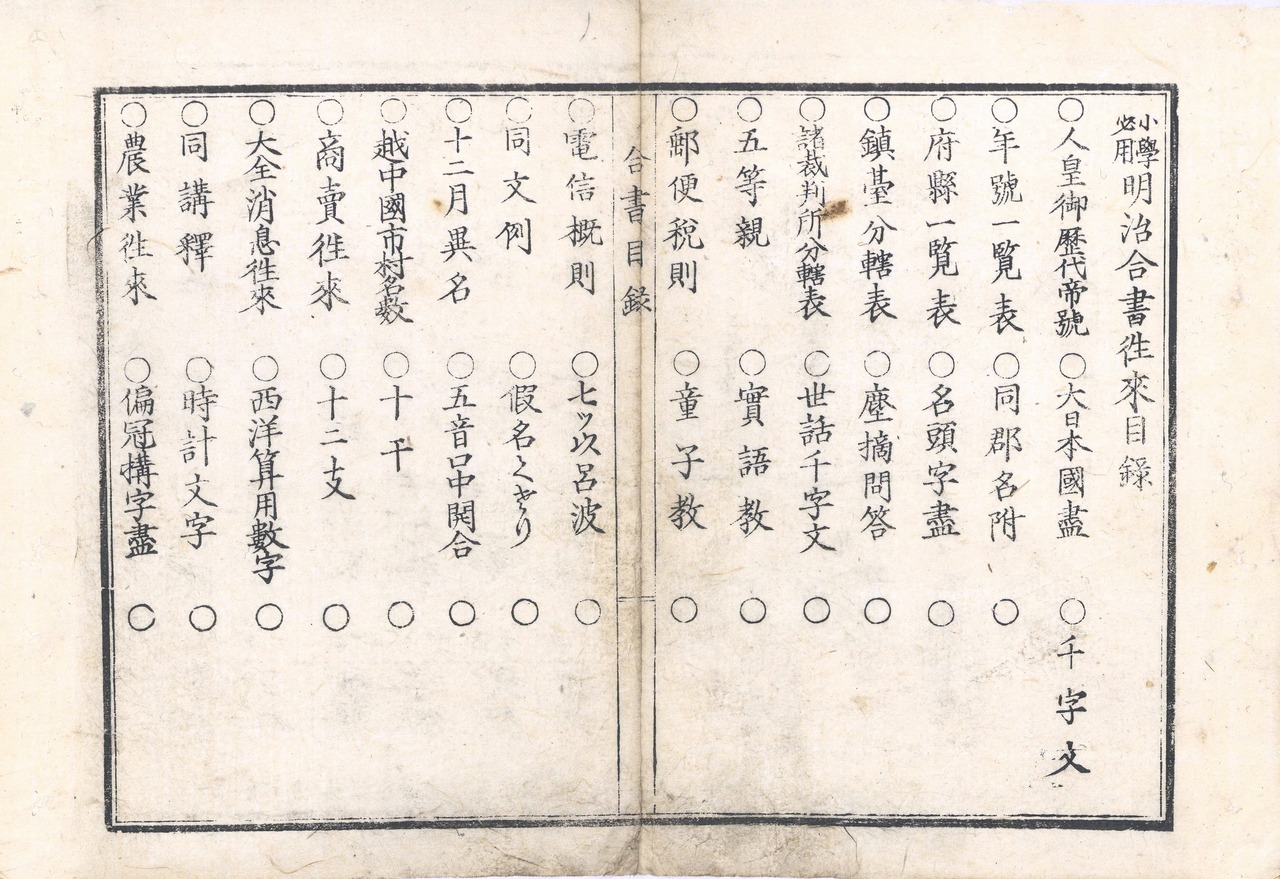 小學必用明治合書徃來目録
○人皇御歷代帝號 ○大日本國盡 ○千字文
○年號一覧表 ○同郡名附 ○
○府縣一覧表 ○名頭字盡 ○
○鎮臺分轄表 ○塵摘問答 ○
○諸裁判所分轄表 ○世話千字文 ○
○五等親 ○實語教 ○
○郵便税則 ○童子教 ○
合書目録
○電信概則 ○七ツ以呂波 ○
○同文例 ○假名くぎり ○
○十二月異名 ○五音口中開合 ○
○越中國市村名数 ○十干 ○
○商賣徃來 ○十二支 ○
○大全消息徃來 ○西洋算用數字 ○
○同講釋 ○時計文字 ○
○農業徃來 ○偏冠搆字盡 ○